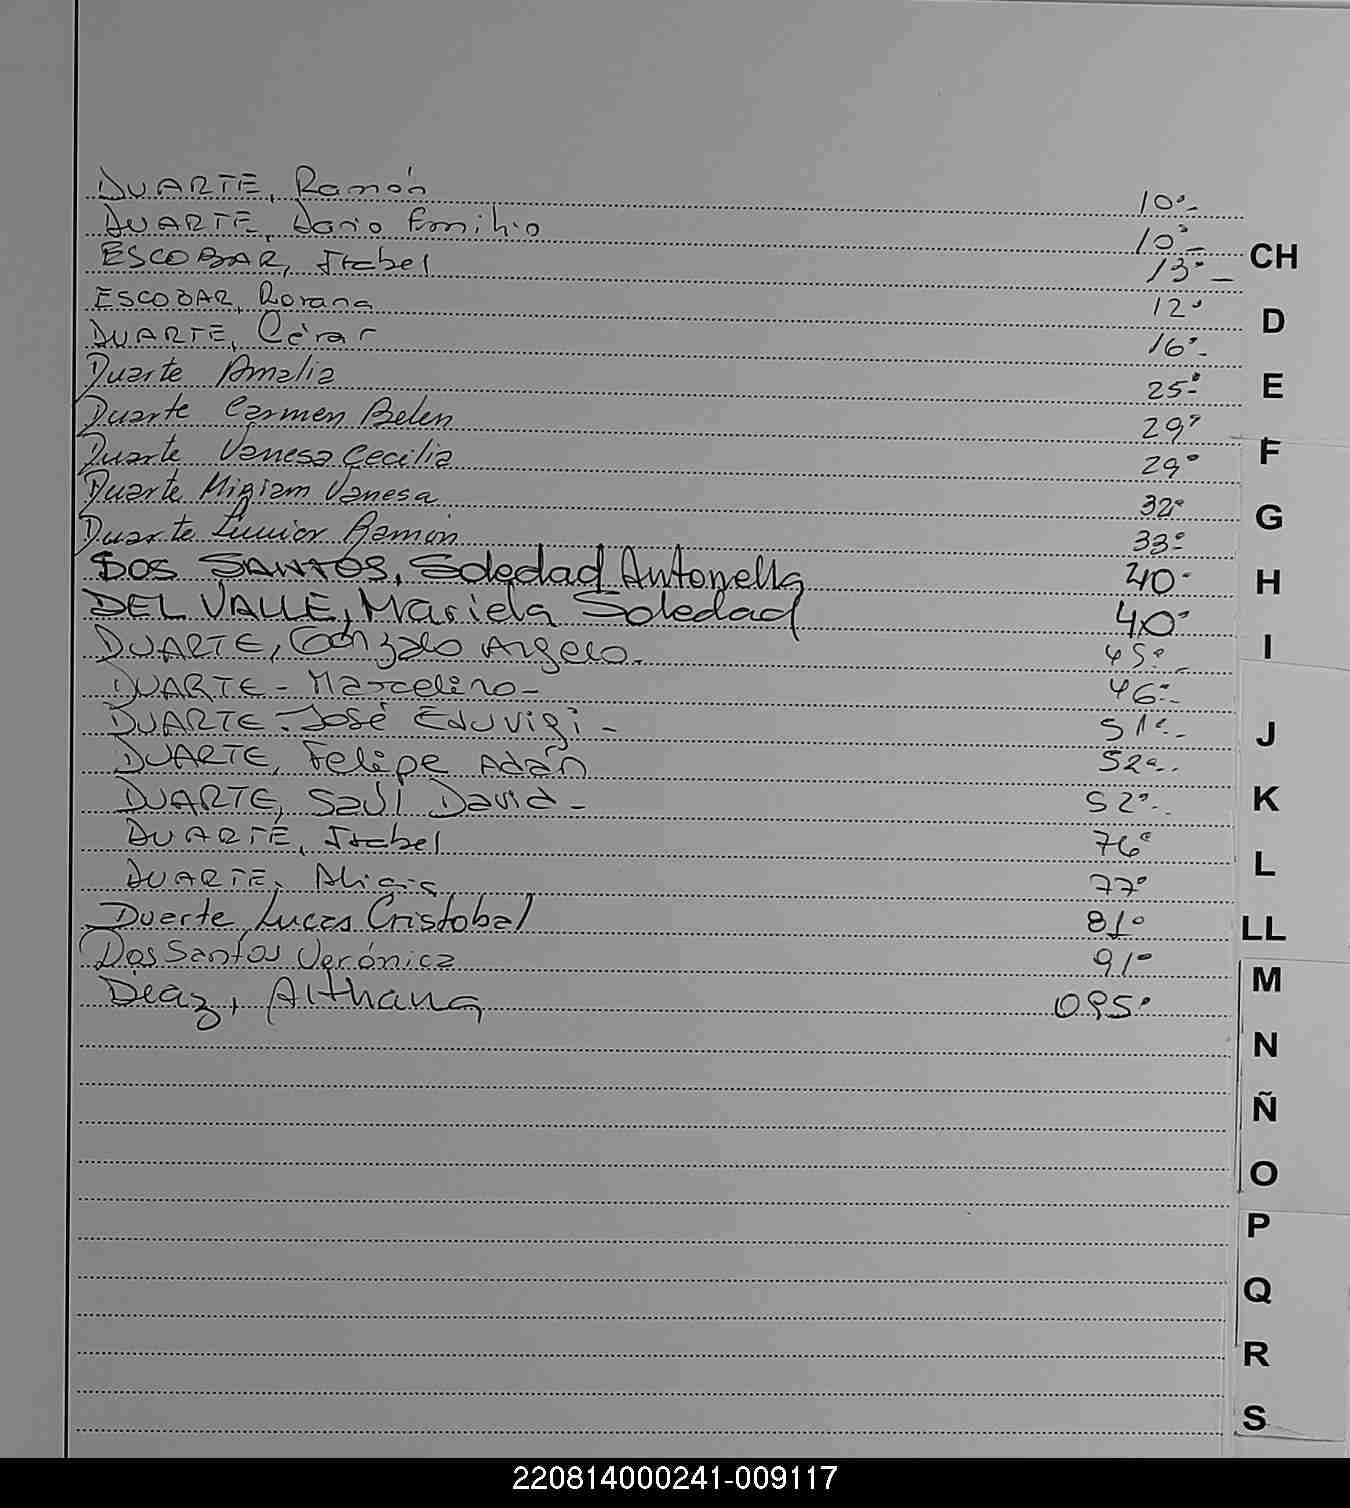 DUARTE, Ramón 10º-
DUARTE, Dario Emilio 10º-
CH
ESCOBAR, Isabel 13º-
ESCOBAR, Roxana 12º
D
DUARTE, César 16º-
Duarte Amalia 25º
E
Duarte Carmen Belen 29º
Duarte Vanesa Cecilia 29º
F
Duarte Miriam Vanesa 32º
G
Duarte Junior Ramón 33º
DOS SANTOS, Soledad Antonella 40º
H
DEL VALLE, Mariela Soledad 40º
DUARTE, Gonzalo Angelo. 45º-
I
DUARTE - Marcelino - 46º-
DUARTE. José Eduvigi - 51º-
J
DUARTE, Felipe Adán 52º-
DUARTE, Saúl David - 52º-
K
DUARTE, Isabel 76º
L
DUARTE, Ligia 77º
Duarte, Lucas Cristobal 81º
LL
Dos Santos Verónica 91º
M
Diaz, Aithana 095º
N
Ñ
O
P
Q
R
S
220814000241-009117